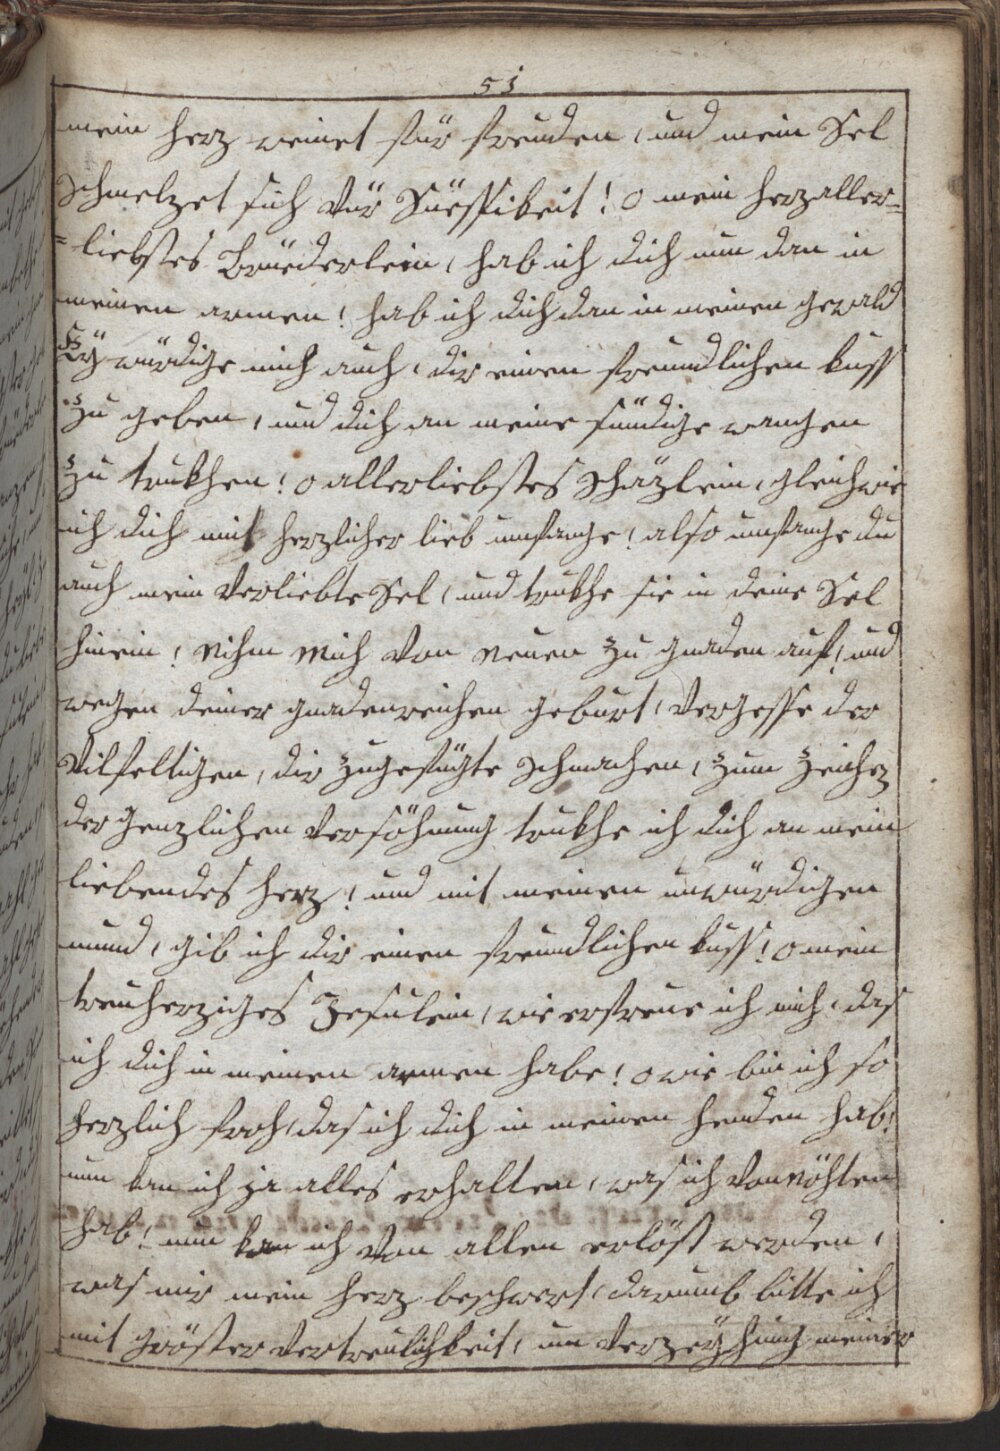 51
mein herz weinet für freuden, und mein Sel
Schmelzet sich vür Süessikeit! o mein herzaller=
=liebstes Brüederlein, hab ich dich nun dan in
meinen armen! hab ich dich dan in meinen gewald
Ey würdige mich auch, dir einen freundlichen kuss
zu geben, und dich an meine sündige wangen
zu trukhen! o allerliebstes Schäzlein, gleichwie
ich dich mit herzlicher lieb umfange! also umfange du
auch mein verliebte Sel, und trukhe sie in deine Sel
hinein! Nihm mich von Neuen zu gnaden auf, und
wegen deiner gnadenreichen geburt, vergesse der
vilfeltigen, dir zugefügte schmachen, zum zeichen
der genzlichen versöhnung trukhe ich dich an mein
liebendes herz! und mit meinen unwürdigen
mund, gib ich dir einen freundlichen kuss! o mein
treuherziges Jesulein, wie erfreue ich mich, das
ich dich in meinen armen habe! o wie bin ich so
herzlich froh, das ich dich in meinen henden hab!
nun kan ich ja alles erhalten, was ich vonnöhten
hab! nun kan ich von allen erlöst werden,
was mir mein herz beschwert, darumb bitte ich
mit gröster vertreulichkeit, um verzeyhung meiner